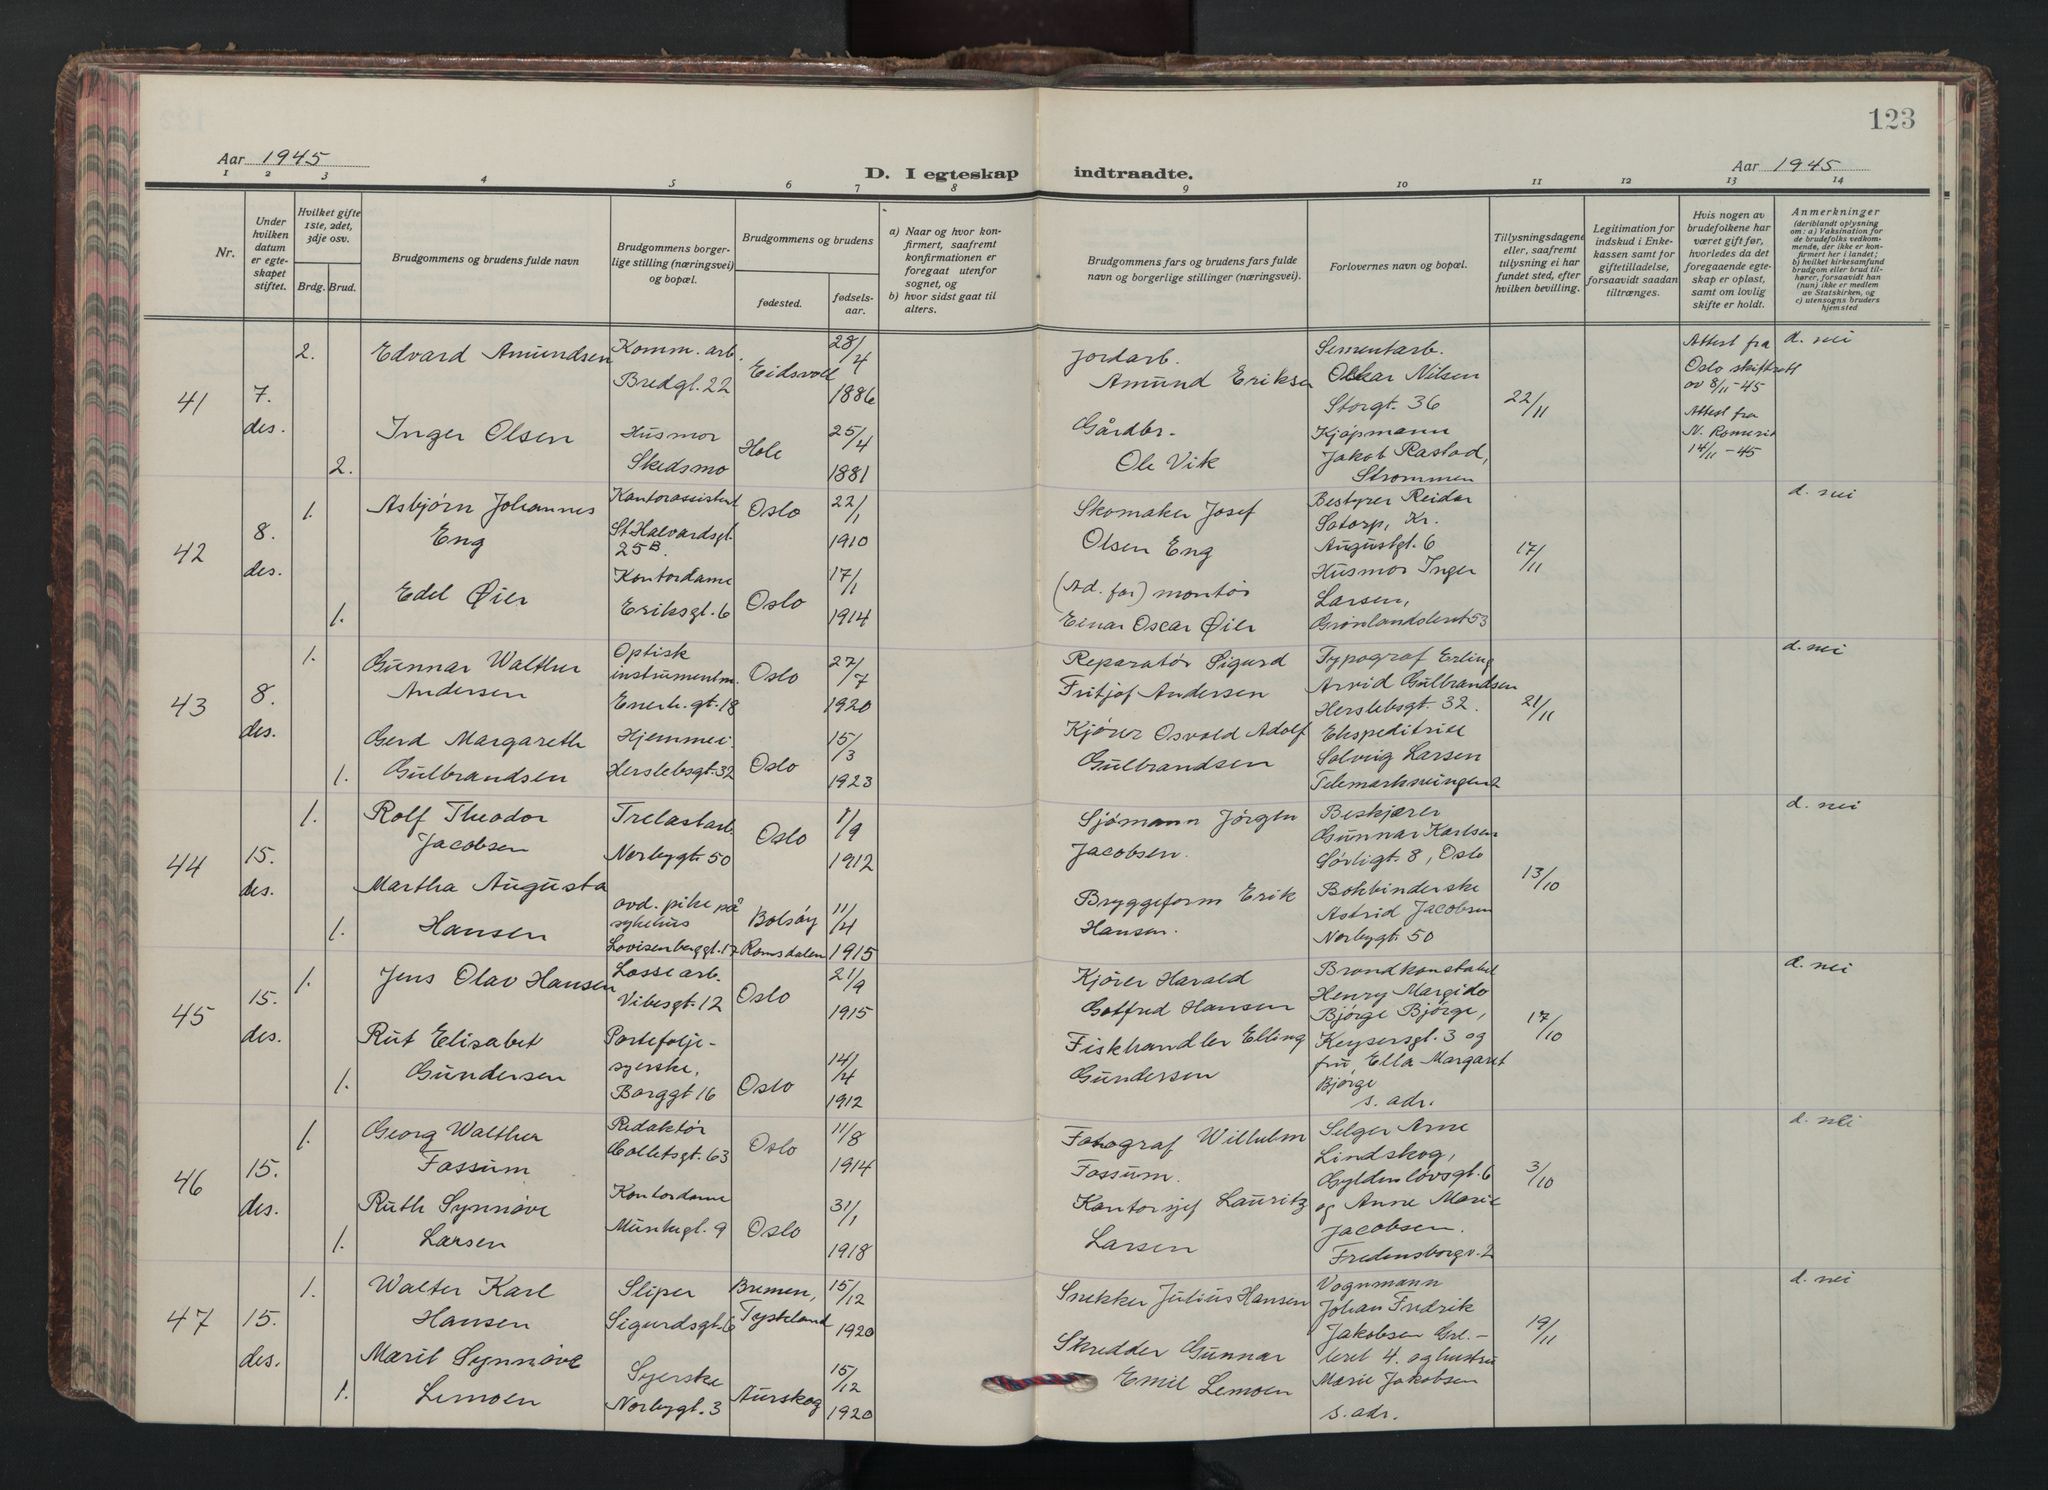 123
Aar 1945
D. I egteskap indtraadte.
Aar 1945
1 2 3 4 5 6 7 8 9 10 11 12 13 14
Nr.
Under hvilken datum er egteskapet stiftet.
Hvilket gifte 1ste, 2det, 3dje osv.
Brdg. Brud.
Brudgommens og brudens fulde navn
Brudgommens borgerlige stilling (næringsvei) og bopæl.
Brudgommens og brudens
fødested.
fødselsaar.
a) Naar og hvor konfirmert, saafremt konfirmationen er foregaat utenfor sognet, og
b) hvor sidst gaat til alters.
Brudgommens fars og brudens fars fulde navn og borgerlige stillinger (næringsvei).
Forlovernes navn og bopæl.
Tillysningsdagene eller, saafremt tillysning ei har fundet sted, efter hvilken bevilling.
Legitimation for indskud i Enkekassen samt for giftetilladelse, forsaavidt saadan tiltrænges.
Hvis nogen av brudefolkene har været gift før, hvorledes da det foregaaende egteskap er opløst, samt om lovlig skifte er holdt.
Anmerkninger
(deriblandt oplysning om: a) Vaksination for de brudefolks vedkommende, der ikke er konfirmert her i landet; b) hvilket kirkesamfund brudgom eller brud tilhører, forsaavidt han (hun) ikke er medlem av Statskirken, og c) utensogns bruders hjemsted
41
7. des.
2.
Edvard Amundsen
Komm. arb.
Bredgt. 22
Eidsvoll
28/4
1886
Jordarb.
Amund Eriksen
Sementarb.
Oskar Nilsen
Storgt. 36
22/11
Attest fra
Oslo skifterett
av 8/11-45
d. nei
2.
Inger Olsen
Husmor
Skedsmo
Hole
25/4
1881
Gårdbr.
Ole Vik
Kjøpmann
Jakob Rastad,
Strømmen
Attest fra
N. Romerik
14/11-45
42
8. des.
1.
Asbjørn Johannes
Eng
Kontorassistent
St Halvardsgt.
25B.
Oslo
22/1
1910
Skomaker Josef
Olsen Eng
Bestyrer Reidar
Satorp, Kr.
Augustgt. 6
17/11
d. nei
1.
Edel Øier
Kontordame
Eriksgt. 6
Oslo
17/1
1914
(Ad. far) montør
Einar Oscar Øier
Husmor Inger
Larsen,
Grønlandsleret 53
43
8. des.
1.
Gunnar Walther
Andersen
Optisk
instrumentm.
Enerh. gt. 18
Oslo
27/7
1920
Reparatør Sigurd
Fritjof Andersen
Typograf Erling
Arvid Gulbrandsen
Herslebsgt. 32.
21/11
d. nei
1.
Gerd Margareth
Gulbrandsen
Hjemmev.
Herslebsgt. 32
Oslo
15/3
1923
Kjører Osvald Adolf
Gulbrandsen
Ekspeditrise
Solveig Larsen
Telemarksvingen 2
44
15. des.
1.
Rolf Theodor
Jacobsen
Trelastarb.
Norbygt. 50
Oslo
1/9
1912
Sjømann Jørgen
Jacobsen.
Beskjærer
Gunnar Karlsen
Sørligt. 8, Oslo
13/10
d. nei
1.
Martha Augusta
Hansen
avd. pike på
sykehus
Lovisenberggt. 17
Bolsøy
Romsdalen
11/4
1915
Bryggeform Erik
Hansen.
Bokbinderske
Astrid Jacobsen
Norbygt. 50
45
15. des.
1.
Jens Olav Hansen
Lossearb.
Vibesgt. 12
Oslo
21/9
1915
Kjører Harald
Gotfred Hansen
Brandkonstabel
Henry Margido
Bjørge Bjørge,
Keysersgt. 3 og
17/10
d. nei
1.
Rut Elisabet
Gundersen
Portefølje-
syerske,
Borggt 16
Oslo
14/4
1912
Fiskhandler Elling
Gundersen
fru, Ella Margaret
Bjørge
s. adr.
46
15. des.
1.
Georg Walther
Fossum
Redaktør
Colletsgt. 63
Oslo
11/8
1914
Fotograf Wilhelm
Fossum.
Selger Arne
Lindskog,
Gyldenløvsgt. 6
3/10
d. nei
1.
Ruth Synnøve
Larsen
Kontordame
Munkegt. 9
Oslo
31/1
1918
Kontorsjef Lauritz
Larsen
og Anne Marie
Jacobsen.
Fredensborgv. 2
47
15. des.
1.
Walter Karl
Hansen
Sliper
Sigurdsgt. 6
Bremen,
Tyskland
15/12
1920
Snekker Julius Hansen
Vognmann
Johan Fredrik
Jakobsen Grl.-
19/11
d. nei
1.
Marit Synnøve
Lemoen
Syerske
Norbygt. 3
Aurskog
15/12
1920
Skredder Gunnar
Emil Lemoen
leret 4. og hustru
Marie Jakobsen
s. adr.